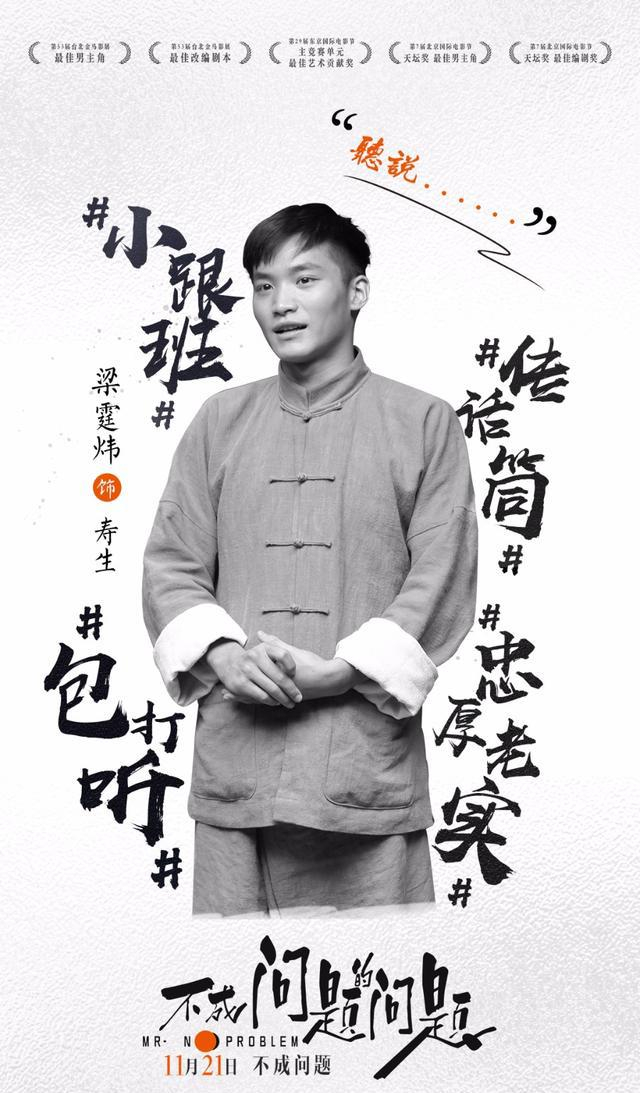 第53届台北金马影展
最佳男主角
第53届台北金马影展
最佳改编剧本
第29届东京国际电影节
主竞赛单元
最佳艺术贡献奖
第7届北京国际电影节
天坛奖 最佳男主角
第7届北京国际电影节
天坛奖 最佳编剧奖
“聽説......”
#小跟班#
梁霆炜 饰 寿生
#传话筒#
#包打听#
#忠厚老实#
不成问题的问题
MR. NO PROBLEM
11月21日 不成问题